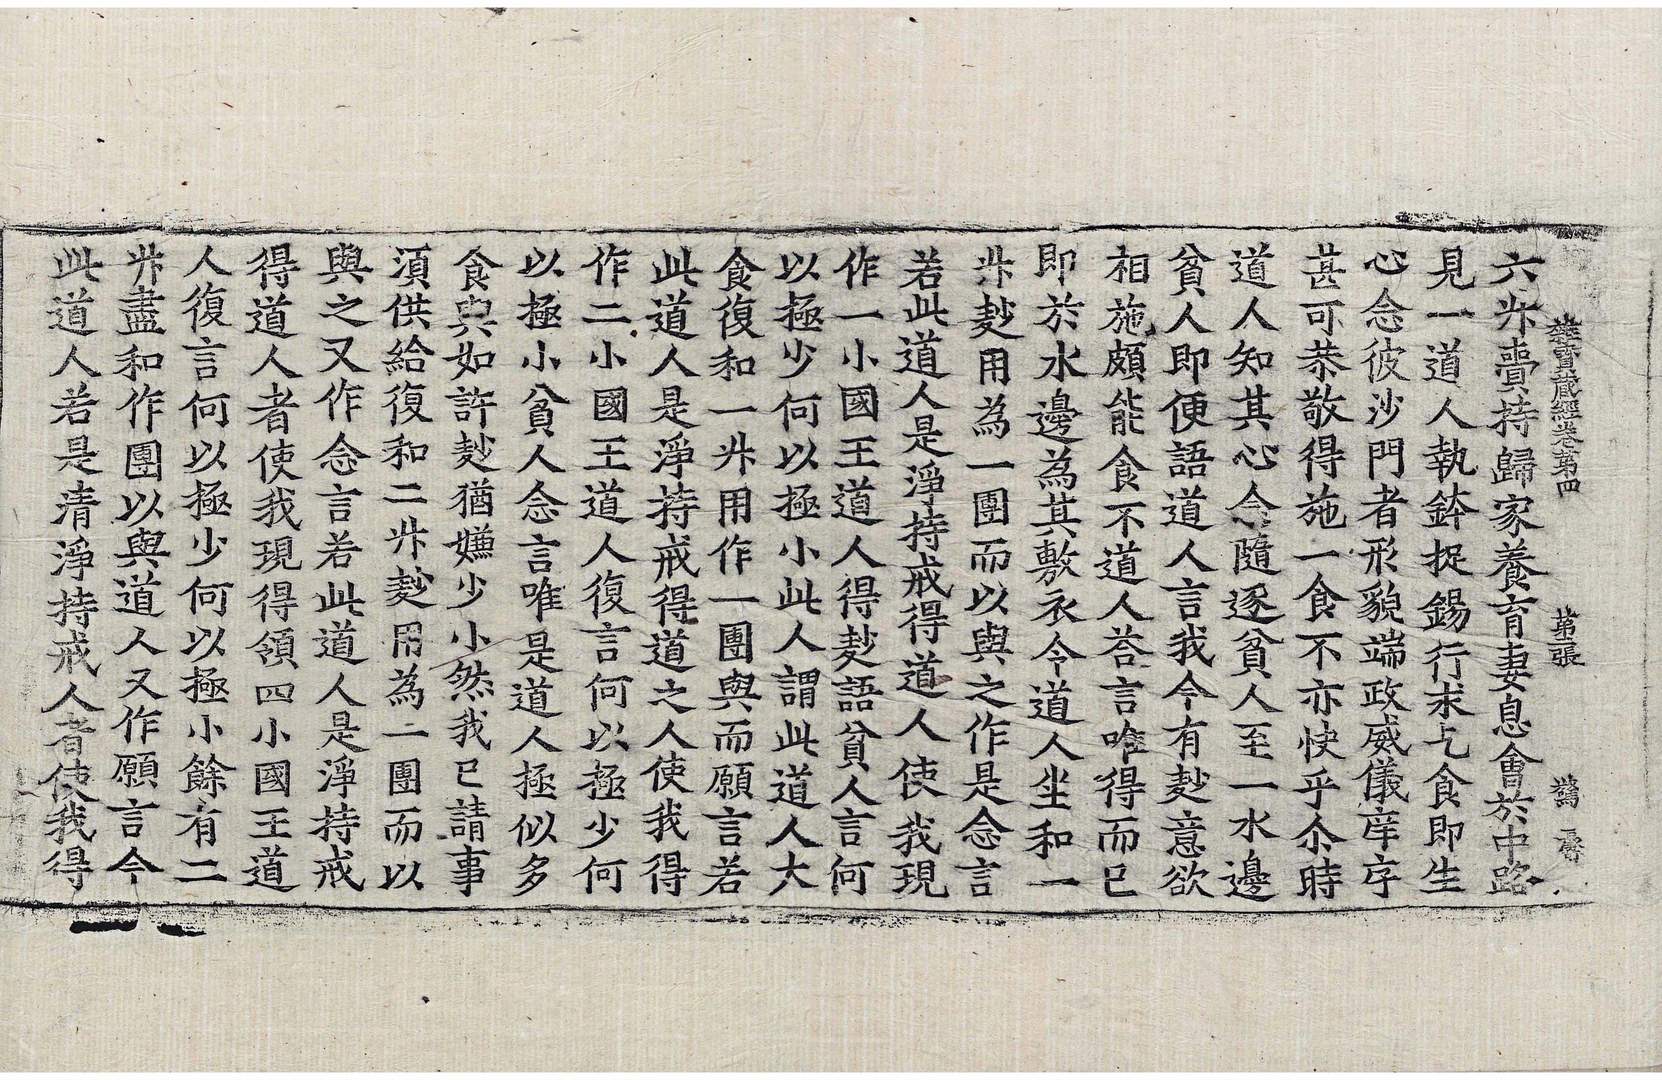 雜寶藏經卷第四 第三張 驚
六升賷持歸家養育妻息會於中路
見一道人執鉢捉錫行求乞食即生
心念彼沙門者形貌端政威儀庠序
甚可恭敬得施一食不亦快乎尒時
道人知其心念隨逐貧人至一水邊
貧人即便語道人言我今有麨意欲
相施頗能食不道人荅言唯得而已
即於水邊為其敷衣令道人坐和一
升麨用為一團而以與之作是念言
若此道人是淨持戒得道人使我現
作一小國王道人得麨語貧人言何
以極少何以極小此人謂此道人大
食復和一升用作一團與而願言若
此道人是淨持戒得道之人使我得
作二小國王道人復言何以極少何
以極小貧人念言唯是道人極似多
食與如許麨猶嫌少小然我已請事
須供給復和二升麨用為一團而以
與之又作念言若此道人是淨持戒
得道人者使我現得領四小國王道
人復言何以極少何以極小餘有二
升盡和作團以與道人又作願言今
此道人若是清淨持戒人者使我得